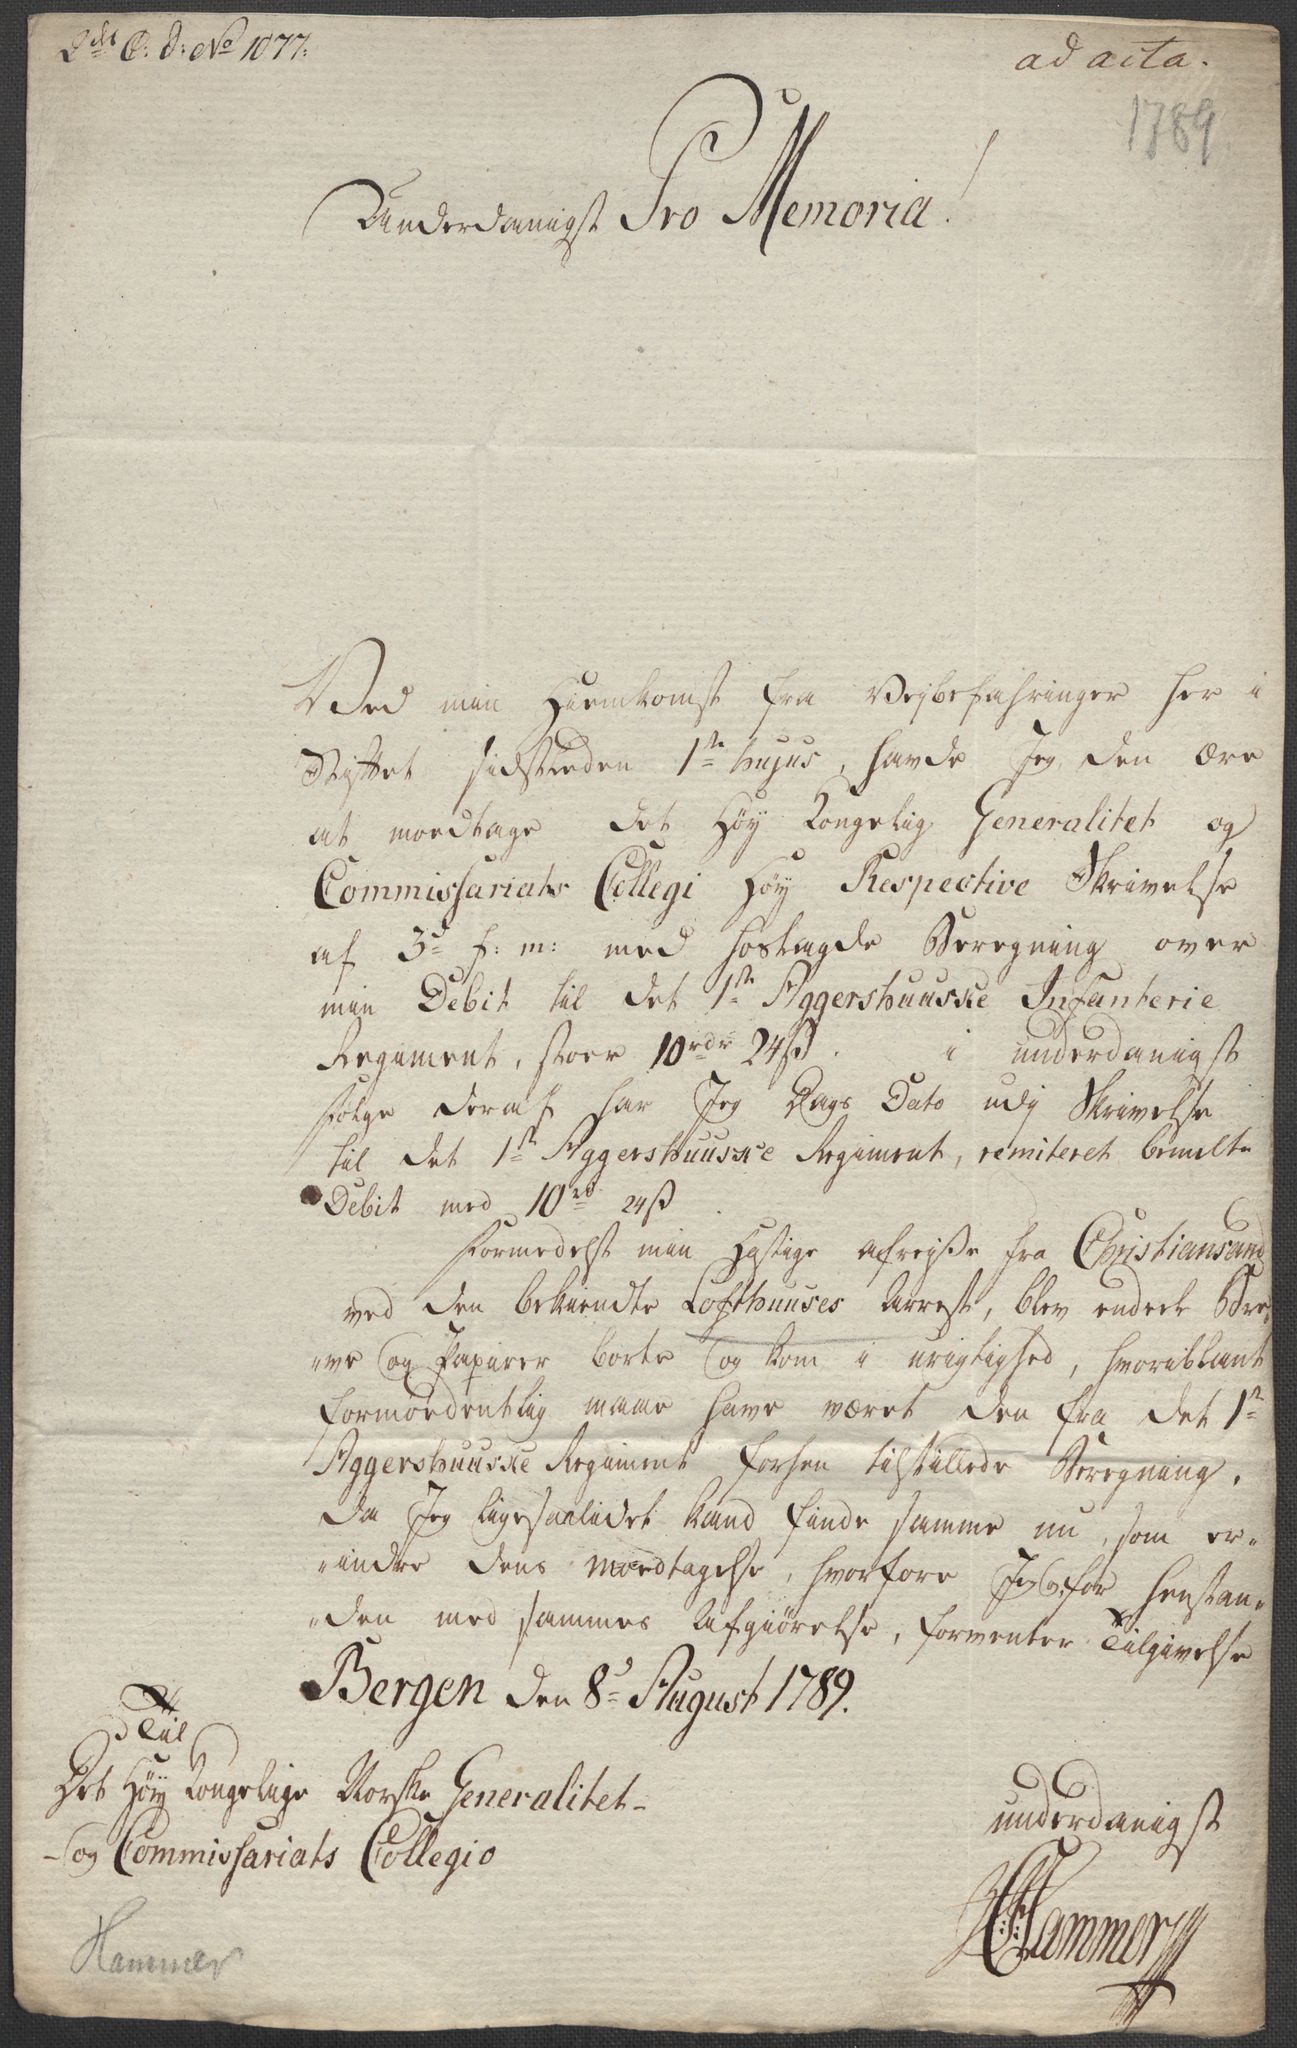 2det C: D: No 1077:
ad acta.
1789
Underdanigst Pro Memoria!
Ved min Hiemkomst fra Vejbefahringer her i
Stiftet sidstleeden 1te hujus, havde Jeg den Ære
at modtage det Høy Kongelig Generalitet og
Commissariats Collegi Høy Respective Skrivelse
af 3d f: m: med hoslagde Beregning over
min Debit til det 1te Aggershuusske Infanterie
Regiment, stoer 10rdr 24ß. i underdanigst
Følge deraf har Jeg Dags Dato udj Skrivelse
til det 1te Aggershuusske Regiment, remiteret bemelte
Debit med 10rd 24ß.
Formedelst min Hastige afrejße fra Christiansand
ved den bekiendte Lofthuuses Arrest, blev endeel Bre„
„ve og Papirer borte og kom i urigtighed, hvoriblant
formoedentlig maae have været den fra det 1te
Aggershuusske Regiment forhen tilstillede Beregning,
da Jeg ligesaalidet kand finde samme nu, som er„
„indre dens Modtagelse, hvorfore Jeg for henstan„
„den med sammes Afgiørelse, forventer Tilgivelse
Bergen den 8d August 1789.
Til
Det Høy Kongelige Norske Generalitet-
-og Commissariats Collegio
underdanigst
Hammer
Hammer